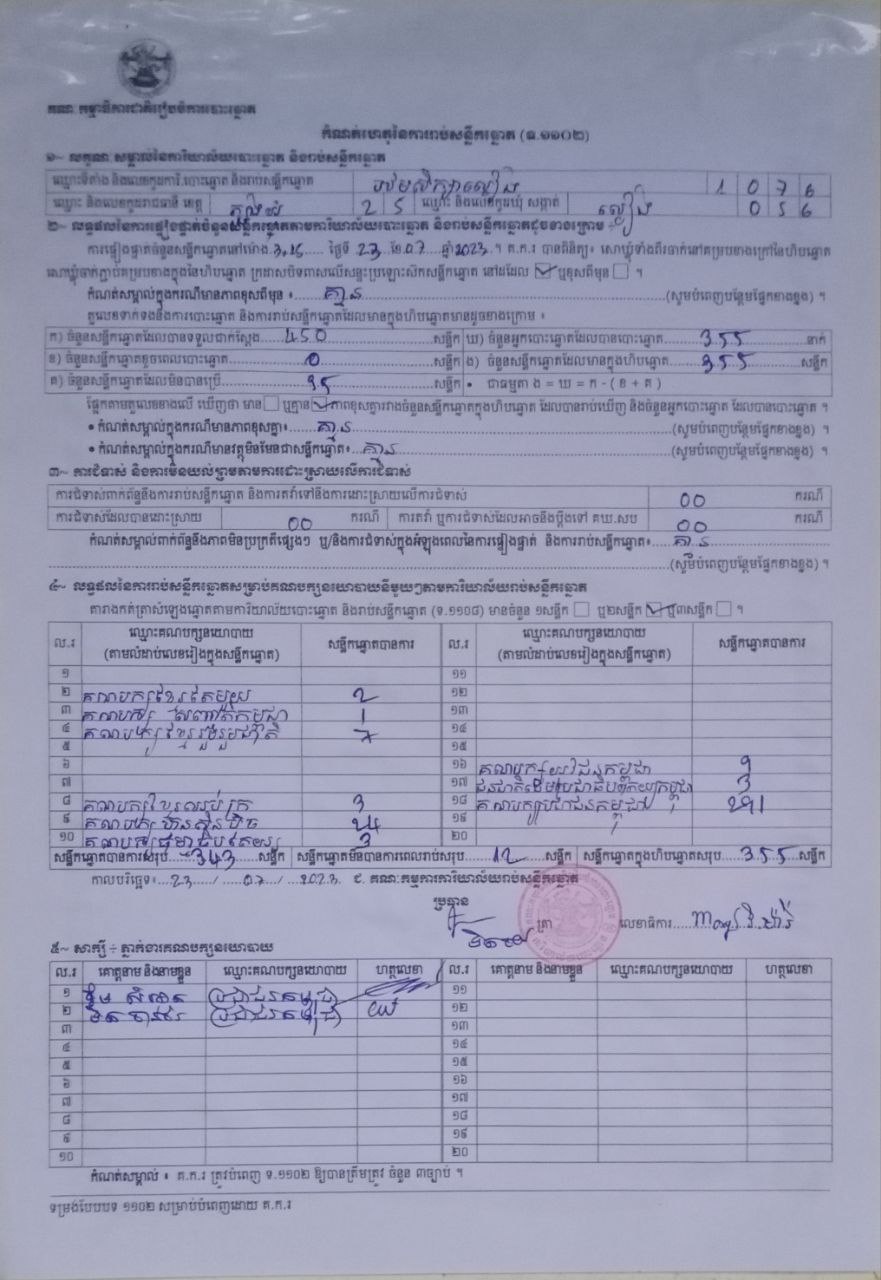 គណៈកម្មាធិការជាតិរៀបចំការបោះឆ្នោត
កំណត់ហេតុនៃការរាប់សន្លឹកឆ្នោត (ទ.១១០២)
១~ លក្ខណៈសម្គាល់នៃការិយាល័យបោះឆ្នោត និងរាប់សន្លឹកឆ្នោត
ឈ្មោះទីតាំង និងលេខកូដការិ.បោះឆ្នោត និងរាប់សន្លឹកឆ្នោត 1 0 7 6
ឈ្មោះ និងលេខកូដរាជធានី ខេត្ត ត្បូងឃ្មុំ 2 5 ឈ្មោះ និងលេខកូដឃុំ សង្កាត់ 0 5 6
២~ លទ្ធផលនៃការផ្ទៀងផ្ទាត់ចំនួនសន្លឹកឆ្នោតតាមការិយាល័យបោះឆ្នោត និងរាប់សន្លឹកឆ្នោតដូចខាងក្រោម ÷
ការផ្ទៀងផ្ទាត់ចំនួនសន្លឹកឆ្នោតនៅម៉ោង 3,15 ថ្ងៃទី 23 ខែ 07 ឆ្នាំ 2023 ។ គ.ក.រ បានពិនិត្យ៖ សោឃ្លុំទាំងពីរចាក់នៅគម្របខាងក្រៅនៃហិបឆ្នោត
សោឃ្លុំចាក់ភ្ជាប់គម្របខាងក្នុងនៃហិបឆ្នោត ក្រដាសបិទពាសលើសន្ទះប្រឡោះសិកសន្លឹកឆ្នោត នៅដដែល ☑ ឬខុសពីមុន ☐ ។
កំណត់សម្គាល់ក្នុងករណីមានភាពខុសពីមុន ៖ គ្មាន (សូមបំពេញបន្ថែមផ្នែកខាងខ្នង) ។
តួលេខទាក់ទងនឹងការបោះឆ្នោត និងការរាប់សន្លឹកឆ្នោតដែលមានក្នុងហិបឆ្នោតមានដូចខាងក្រោម ៖
ក) ចំនួនសន្លឹកឆ្នោតដែលបានទទួលជាក់ស្តែង 450 សន្លឹក ឃ) ចំនួនអ្នកបោះឆ្នោតដែលបានបោះឆ្នោត 355 នាក់
ខ) ចំនួនសន្លឹកឆ្នោតខូចពេលបោះឆ្នោត 0 សន្លឹក ង) ចំនួនសន្លឹកឆ្នោតដែលមានក្នុងហិបឆ្នោត 355 សន្លឹក
គ) ចំនួនសន្លឹកឆ្នោតដែលមិនបានប្រើ 95 សន្លឹក • ជាធម្មតា ង = ឃ = ក - ( ខ + គ )
ផ្អែកតាមតួលេខខាងលើ ឃើញថា មាន ☐ ឬគ្មាន ☑ ភាពខុសគ្នារវាងចំនួនសន្លឹកឆ្នោតក្នុងហិបឆ្នោត ដែលបានរាប់ឃើញ និងចំនួនអ្នកបោះឆ្នោត ដែលបានបោះឆ្នោត ។
• កំណត់សម្គាល់ក្នុងករណីមានភាពខុសគ្នា៖ គ្មាន (សូមបំពេញបន្ថែមផ្នែកខាងខ្នង) ។
• កំណត់សម្គាល់ក្នុងករណីមានវត្ថុមិនមែនជាសន្លឹកឆ្នោត៖ គ្មាន
៣~ ការជំទាស់ និងការមិនយល់ព្រមតាមការដោះស្រាយលើការជំទាស់
ការជំទាស់ពាក់ព័ន្ធនឹងការរាប់សន្លឹកឆ្នោត និងការតវ៉ាទៅនឹងការដោះស្រាយលើការជំទាស់ 00 ករណី
ការជំទាស់ដែលបានដោះស្រាយ 00 ករណី ការតវ៉ា ឬការជំទាស់ដែលអាចនឹងប្តឹងទៅ គឃ.សប 00 ករណី
កំណត់សម្គាល់ពាក់ព័ន្ធនឹងភាពមិនប្រក្រតីផ្សេងៗ ឬ/និងការជំទាស់ក្នុងអំឡុងពេលនៃការផ្ទៀងផ្ទាត់ និងការរាប់សន្លឹកឆ្នោត៖ គ្មាន
(សូមបំពេញបន្ថែមផ្នែកខាងខ្នង) ។
៤~ លទ្ធផលនៃការរាប់សន្លឹកឆ្នោតសម្រាប់គណបក្សនយោបាយនីមួយៗតាមការិយាល័យរាប់សន្លឹកឆ្នោត
តារាងកត់ត្រាសំឡេងឆ្នោតតាមការិយាល័យបោះឆ្នោត និងរាប់សន្លឹកឆ្នោត (ទ.១១០៨) មានចំនួន ១សន្លឹក ☐ ឬ២សន្លឹក ☑ ឬ៣សន្លឹក ☐ ។
ល.រ ឈ្មោះគណបក្សនយោបាយ (តាមលំដាប់លេខរៀងក្នុងសន្លឹកឆ្នោត) សន្លឹកឆ្នោតបានការ ល.រ ឈ្មោះគណបក្សនយោបាយ (តាមលំដាប់លេខរៀងក្នុងសន្លឹកឆ្នោត) សន្លឹកឆ្នោតបានការ
១ ១១
២ គណបក្សខ្មែរតែមួយ 2 ១២
៣ គណបក្ស 1 ១៣
៤ គណបក្សខ្មែររួបរួមជាតិ 7 ១៤
៥ ១៥
៦ ១៦ គណបក្សយុវជនកម្ពុជា 9
៧ ១៧ 3
៨ គណបក្សខ្មែរឈប់ក្រ 3 ១៨ គណបក្សប្រជាជនកម្ពុជា
៩ គណបក្សហ៊្វុនស៊ិនប៉ិច ១៩
១០ 3 ២០
សន្លឹកឆ្នោតបានការសរុប 343 សន្លឹក សន្លឹកឆ្នោតមិនបានការពេលរាប់សរុប 12 សន្លឹក សន្លឹកឆ្នោតក្នុងហិបឆ្នោតសរុប 355 សន្លឹក
កាលបរិច្ឆេទ៖ 23 / 07 / 2023 ជ. គណៈកម្មការការិយាល័យរាប់សន្លឹកឆ្នោត
ប្រធាន
ត្រា លេខាធិការ
៥~ សាក្សី ÷ ភ្នាក់ងារគណបក្សនយោបាយ
ល.រ គោត្តនាម និងនាមខ្លួន ឈ្មោះគណបក្សនយោបាយ ហត្ថលេខា ល.រ គោត្តនាម និងនាមខ្លួន ឈ្មោះគណបក្សនយោបាយ ហត្ថលេខា
១ ប្រជាជនកម្ពុជា ១១
២ ប្រជាជនកម្ពុជា ១២
៣ ១៣
៤ ១៤
៥ ១៥
៦ ១៦
៧ ១៧
៨ ១៨
៩ ១៩
១០ ២០
កំណត់សម្គាល់ ៖ គ.ក.រ ត្រូវបំពេញ ទ.១១០២ ឱ្យបានត្រឹមត្រូវ ចំនួន ៣ច្បាប់ ។
ទម្រង់បែបបទ ១១០២ សម្រាប់បំពេញដោយ គ.ក.រ